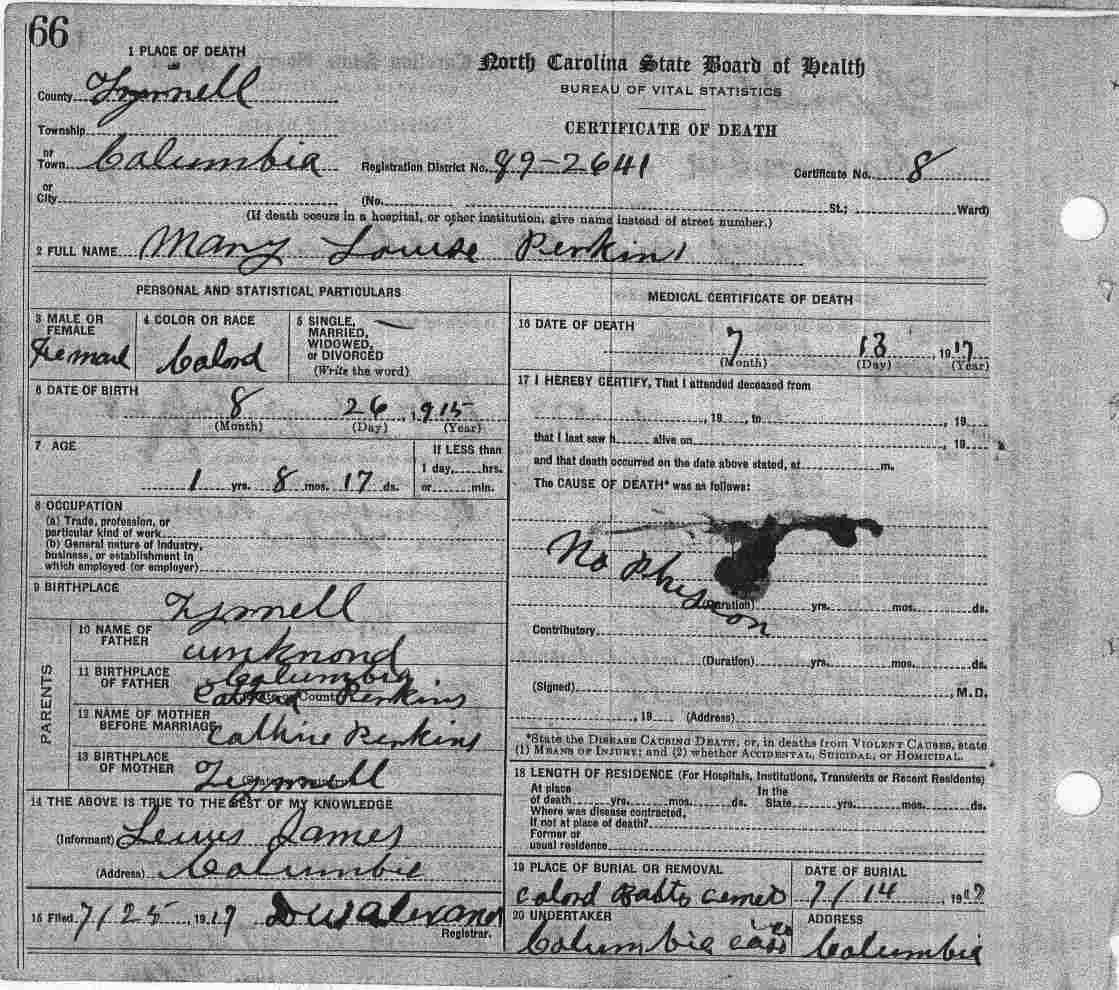 66
1 PLACE OF DEATH
North Carolina State Board of Health
BUREAU OF VITAL STATISTICS
CERTIFICATE OF DEATH
County Tyrrell
Township
or
Town Columbia Registration District No. 89-2641 Certificate No. 8
or
City (No. St.; Ward)
(If death occurs in a hospital, or other institution, give name instead of street number.)
2 FULL NAME Mary Louise Perkins
PERSONAL AND STATISTICAL PARTICULARS
3 MALE OR FEMALE Female
4 COLOR OR RACE Calord
5 SINGLE, MARRIED, WIDOWED, or DIVORCED
(Write the word)
6 DATE OF BIRTH
8 26, 1915
(Month) (Day) (Year)
7 AGE
If LESS than
1 day, hrs.
or min.
1 yrs. 8 mos. 17 ds.
8 OCCUPATION
(a) Trade, profession, or
particular kind of work
(b) General nature of industry,
business, or establishment in
which employed (or employer)
9 BIRTHPLACE
Tyrrell
PARENTS
10 NAME OF FATHER
unknond
11 BIRTHPLACE OF FATHER
Columbia
Perkins
12 NAME OF MOTHER BEFORE MARRIAGE
Cathine Perkins
13 BIRTHPLACE OF MOTHER
Tyrrell
14 THE ABOVE IS TRUE TO THE BEST OF MY KNOWLEDGE
(Informant) Lewis James
(Address) Columbia
15 Filed 7/25, 1917
Registrar.
MEDICAL CERTIFICATE OF DEATH
16 DATE OF DEATH
7 13, 1917
(Month) (Day) (Year)
17 I HEREBY CERTIFY, That I attended deceased from
, 19 , to , 19
that I last saw h alive on , 19
and that death occurred on the date above stated, at m.
The CAUSE OF DEATH* was as follows:
No Physson
(Duration) yrs. mos. ds.
Contributory
(Duration) yrs. mos. ds.
(Signed) , M.D.
, 19 (Address)
*State the DISEASE CAUSING DEATH, or, in deaths from VIOLENT CAUSES, state
(1) MEANS OF INJURY; and (2) whether ACCIDENTAL, SUICIDAL, OR HOMICIDAL.
18 LENGTH OF RESIDENCE (For Hospitals, Institutions, Transients or Recent Residents)
At place of death yrs. mos. ds. In the State yrs. mos. ds.
Where was disease contracted,
If not at place of death?
Former or
usual residence
19 PLACE OF BURIAL OR REMOVAL
calord cemet
DATE OF BURIAL
7/14, 191
20 UNDERTAKER
Columbia
ADDRESS
Columbia